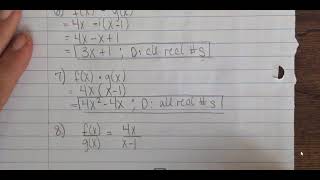 6) f(x) - g(x)
= 4x - 1(x-1)
= 4x - x + 1
= 3x + 1 ; D: all real #s
7) f(x) · g(x)
= 4x (x-1)
= 4x² - 4x ; D: all real #s
8) f(x)/g(x) = 4x/x-1